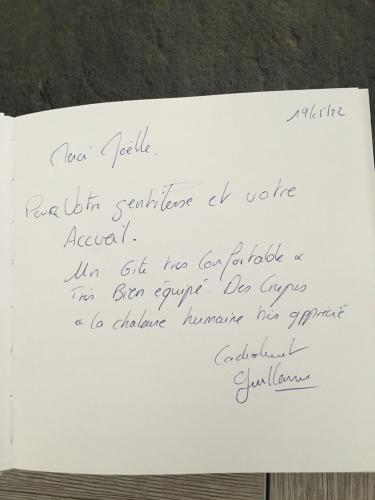 19/05/22
Merci Joëlle.
Pour Votre gentillesse et votre
Accueil.
Un Gite très Confortable &
Très Bien équipé. Des Crepes
& la chaleur humaine très apprécié
Cordialement
Guillaume